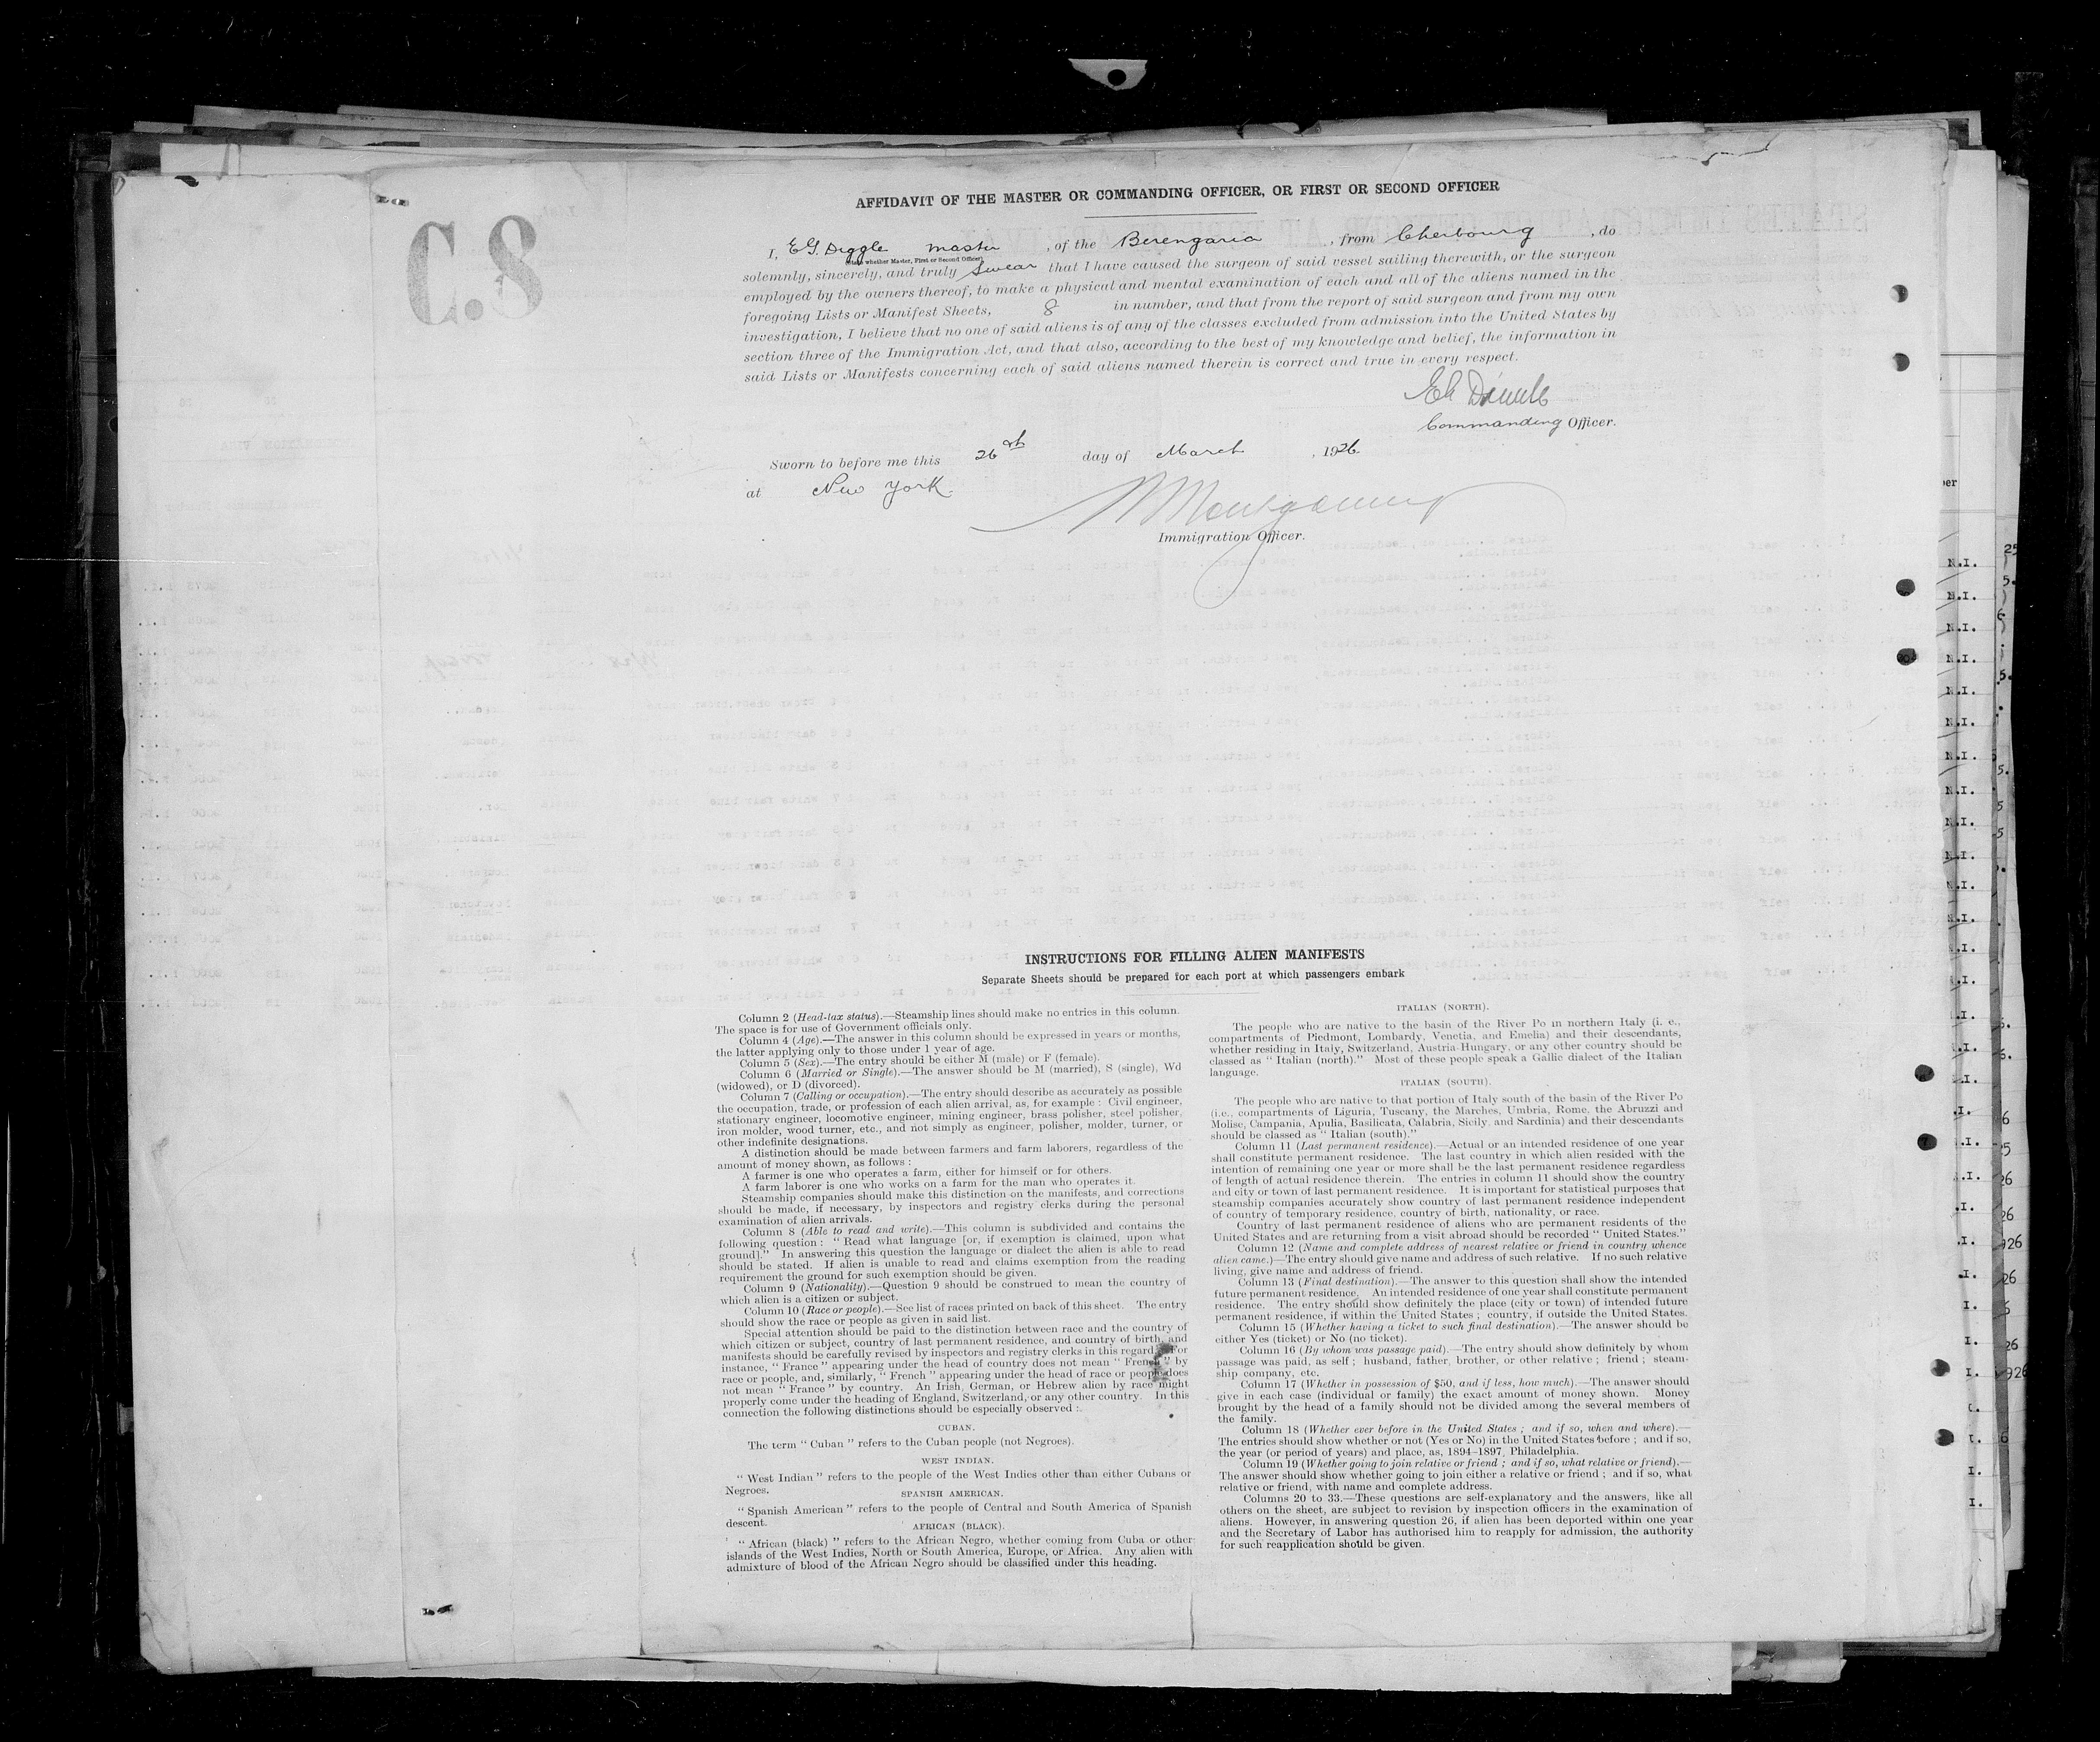 C.8
AFFIDAVIT OF THE MASTER OR COMMANDING OFFICER, OR FIRST OR SECOND OFFICER
I, E G. Diggle master , of the Berengaria , from Cherbourg , do
(State whether Master, First or Second Officer)
solemnly, sincerely, and truly swear that I have caused the surgeon of said vessel sailing therewith, or the surgeon
employed by the owners thereof, to make a physical and mental examination of each and all of the aliens named in the
foregoing Lists or Manifest Sheets, 8 in number, and that from the report of said surgeon and from my own
investigation, I believe that no one of said aliens is of any of the classes excluded from admission into the United States by
section three of the Immigration Act, and that also, according to the best of my knowledge and belief, the information in
said Lists or Manifests concerning each of said aliens named therein is correct and true in every respect.
Commanding Officer.
Sworn to before me this 26th day of March , 1926.
at New York.
Immigration Officer.
INSTRUCTIONS FOR FILLING ALIEN MANIFESTS
Separate Sheets should be prepared for each port at which passengers embark
Column 2 (Head-tax status).—Steamship lines should make no entries in this column.
The space is for use of Government officials only.
Column 4 (Age).—The answer in this column should be expressed in years or months,
the latter applying only to those under 1 year of age.
Column 5 (Sex).—The entry should be either M (male) or F (female).
Column 6 (Married or Single).—The answer should be M (married), S (single), Wd
(widowed), or D (divorced).
Column 7 (Calling or occupation).—The entry should describe as accurately as possible
the occupation, trade, or profession of each alien arrival, as, for example : Civil engineer,
stationary engineer, locomotive engineer, mining engineer, brass polisher, steel polisher,
iron molder, wood turner, etc., and not simply as engineer, polisher, molder, turner, or
other indefinite designations.
A distinction should be made between farmers and farm laborers, regardless of the
amount of money shown, as follows :
A farmer is one who operates a farm, either for himself or for others.
A farm laborer is one who works on a farm for the man who operates it.
Steamship companies should make this distinction on the manifests, and corrections
should be made, if necessary, by inspectors and registry clerks during the personal
examination of alien arrivals.
Column 8 (Able to read and write).—This column is subdivided and contains the
following question : “ Read what language [or, if exemption is claimed, upon what
ground].” In answering this question the language or dialect the alien is able to read
should be stated. If alien is unable to read and claims exemption from the reading
requirement the ground for such exemption should be given.
Column 9 (Nationality).—Question 9 should be construed to mean the country of
which alien is a citizen or subject.
Column 10 (Race or people).—See list of races printed on back of this sheet. The entry
should show the race or people as given in said list.
Special attention should be paid to the distinction between race and the country of
which citizen or subject, country of last permanent residence, and country of birth, and
manifests should be carefully revised by inspectors and registry clerks in this regard. For
instance, “ France ” appearing under the head of country does not mean “ French ” by
race or people, and, similarly, “ French ” appearing under the head of race or people does
not mean “ France ” by country. An Irish, German, or Hebrew alien by race might
properly come under the heading of England, Switzerland, or any other country. In this
connection the following distinctions should be especially observed :
CUBAN.
The term “ Cuban ” refers to the Cuban people (not Negroes).
WEST INDIAN.
“ West Indian ” refers to the people of the West Indies other than either Cubans or
Negroes.
SPANISH AMERICAN.
“ Spanish American ” refers to the people of Central and South America of Spanish
descent.
AFRICAN (BLACK).
“ African (black) ” refers to the African Negro, whether coming from Cuba or other
islands of the West Indies, North or South America, Europe, or Africa. Any alien with
admixture of blood of the African Negro should be classified under this heading.
ITALIAN (NORTH).
The people who are native to the basin of the River Po in northern Italy (i. e.,
compartments of Piedmont, Lombardy, Venetia, and Emelia) and their descendants,
whether residing in Italy, Switzerland, Austria-Hungary, or any other country should be
classed as “ Italian (north).” Most of these people speak a Gallic dialect of the Italian
language.
ITALIAN (SOUTH).
The people who are native to that portion of Italy south of the basin of the River Po
(i.e., compartments of Liguria, Tuscany, the Marches, Umbria, Rome, the Abruzzi and
Molise, Campania, Apulia, Basilicata, Calabria, Sicily, and Sardinia) and their descendants
should be classed as “ Italian (south).”
Column 11 (Last permanent residence).—Actual or an intended residence of one year
shall constitute permanent residence. The last country in which alien resided with the
intention of remaining one year or more shall be the last permanent residence regardless
of length of actual residence therein. The entries in column 11 should show the country
and city or town of last permanent residence. It is important for statistical purposes that
steamship companies accurately show country of last permanent residence independent
of country of temporary residence, country of birth, nationality, or race.
Country of last permanent residence of aliens who are permanent residents of the
United States and are returning from a visit abroad should be recorded “ United States.”
Column 12 (Name and complete address of nearest relative or friend in country whence
alien came.)—The entry should give name and address of such relative. If no such relative
living, give name and address of friend.
Column 13 (Final destination).—The answer to this question shall show the intended
future permanent residence. An intended residence of one year shall constitute permanent
residence. The entry should show definitely the place (city or town) of intended future
permanent residence, if within the United States ; country, if outside the United States.
Column 15 (Whether having a ticket to such final destination).—The answer should be
either Yes (ticket) or No (no ticket).
Column 16 (By whom was passage paid).—The entry should show definitely by whom
passage was paid, as self ; husband, father, brother, or other relative ; friend ; steam-
ship company, etc.
Column 17 (Whether in possession of $50, and if less, how much).—The answer should
give in each case (individual or family) the exact amount of money shown. Money
brought by the head of a family should not be divided among the several members of
the family.
Column 18 (Whether ever before in the United States ; and if so, when and where).—
The entries should show whether or not (Yes or No) in the United States before ; and if so,
the year (or period of years) and place, as, 1894–1897, Philadelphia.
Column 19 (Whether going to join relative or friend ; and if so, what relative or friend).—
The answer should show whether going to join either a relative or friend ; and if so, what
relative or friend, with name and complete address.
Columns 20 to 33.—These questions are self-explanatory and the answers, like all
others on the sheet, are subject to revision by inspection officers in the examination of
aliens. However, in answering question 26, if alien has been deported within one year
and the Secretary of Labor has authorised him to reapply for admission, the authority
for such reapplication should be given.